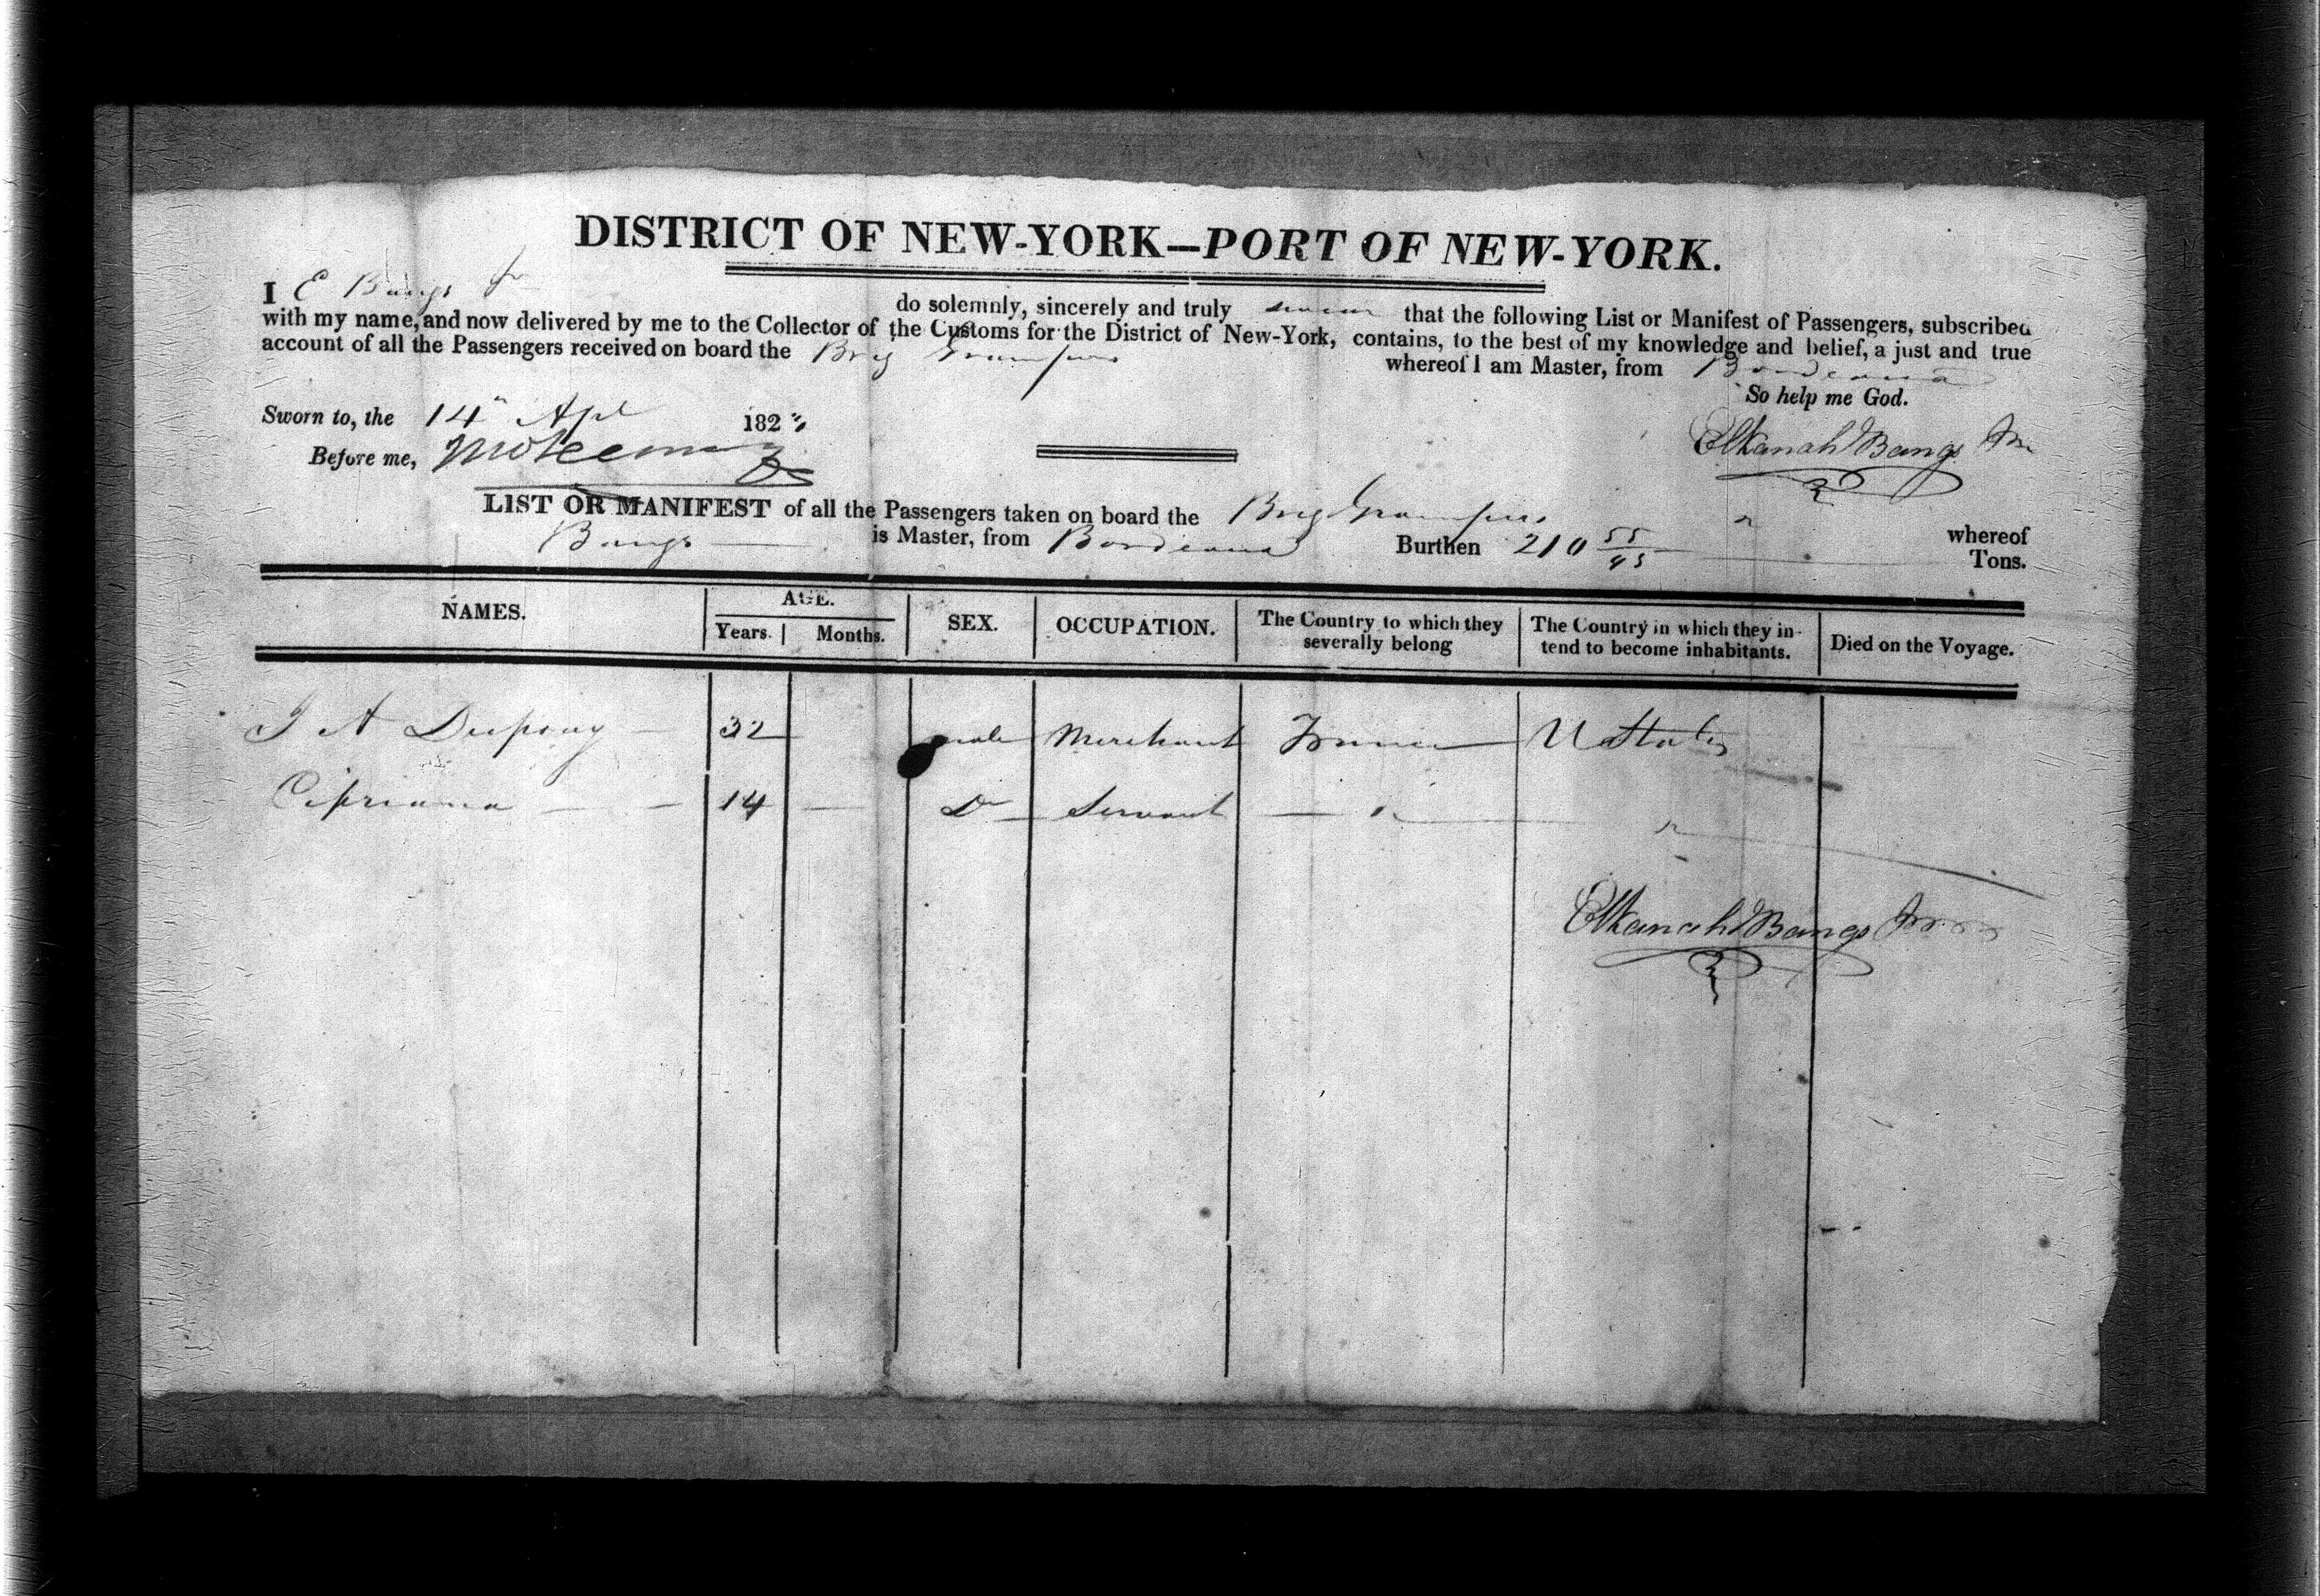 DISTRICT OF NEW-YORK—PORT OF NEW-YORK.
I E Bangs Jr do solemnly, sincerely and truly swear that the following List or Manifest of Passengers, subscribed
with my name, and now delivered by me to the Collector of the Customs for the District of New-York, contains, to the best of my knowledge and belief, a just and true
account of all the Passengers received on board the Brig Grampus whereof I am Master, from Bordeaux
So help me God.
Sworn to, the 14" Apl 182
Elkanah Bangs Jr
Before me,
LIST OR MANIFEST of all the Passengers taken on board the Brig Grampus whereof
Bangs is Master, from Bordeaux Burthen 210 55/95 Tons.
NAMES. AGE. SEX. OCCUPATION. The Country to which they severally belong The Country in which they intend to become inhabitants. Died on the Voyage.
Years. Months.
J A Dupouy 32 male Merchant France U States
Cipriana 14 Do Servant " "
Elkanah Bangs Jr